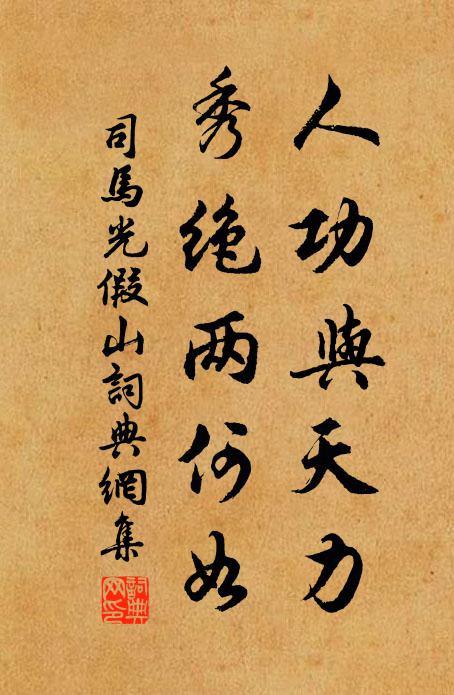 人功與天力
秀絶兩何如
司馬光假山詞典網集
詞典網印